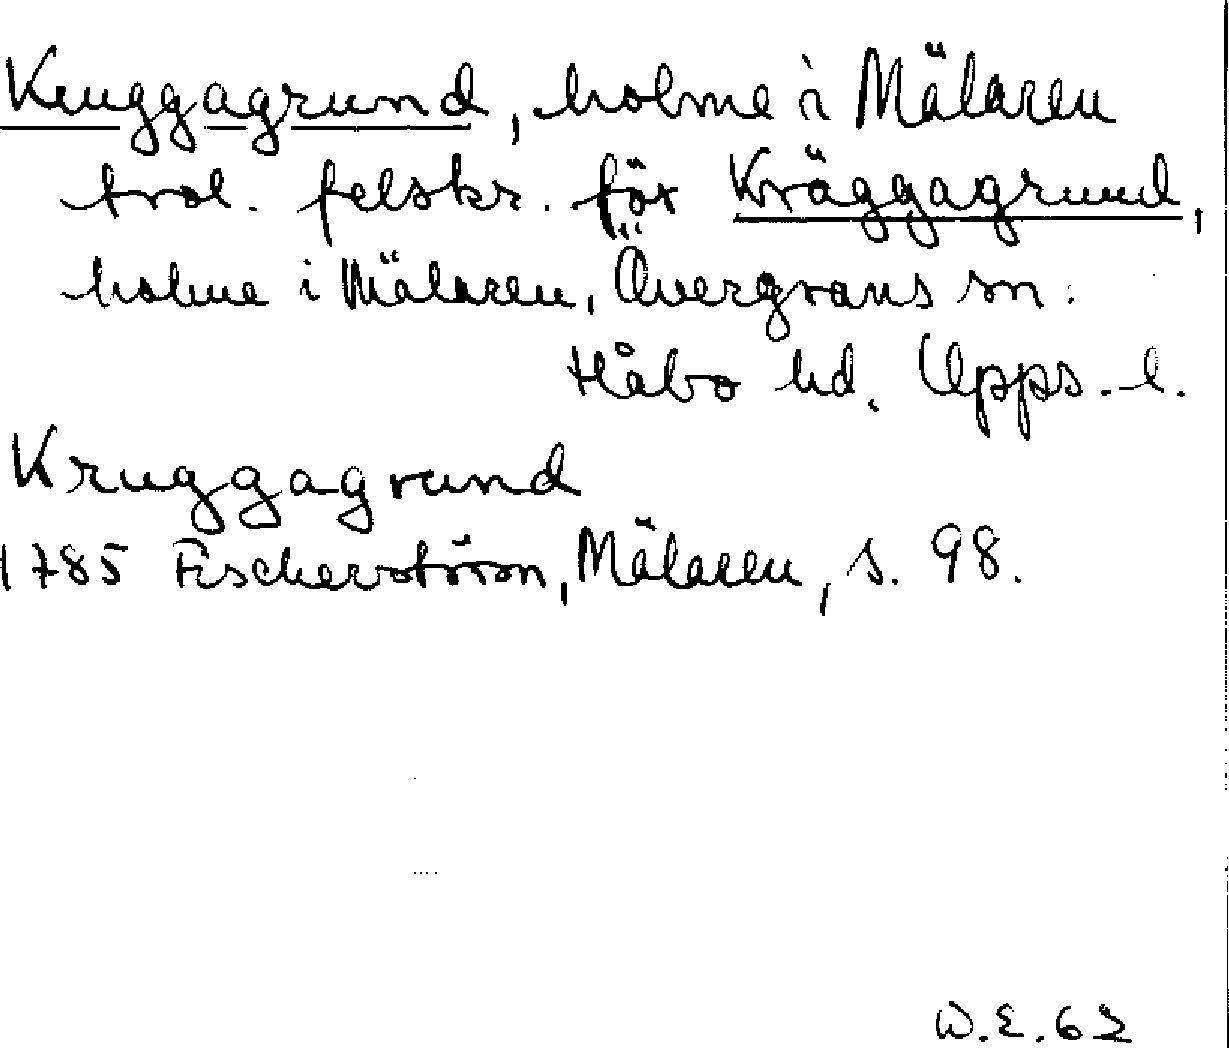 Kruggagrund, holme i Mälaren
trol. felskr. för Kräggagrund,
holme i Mälaren, Övergrans sn.
Håbo hd. Upps. l.
Kruggagrund
1785 Fischerström, Mälaren, s. 98.
W.E. 62